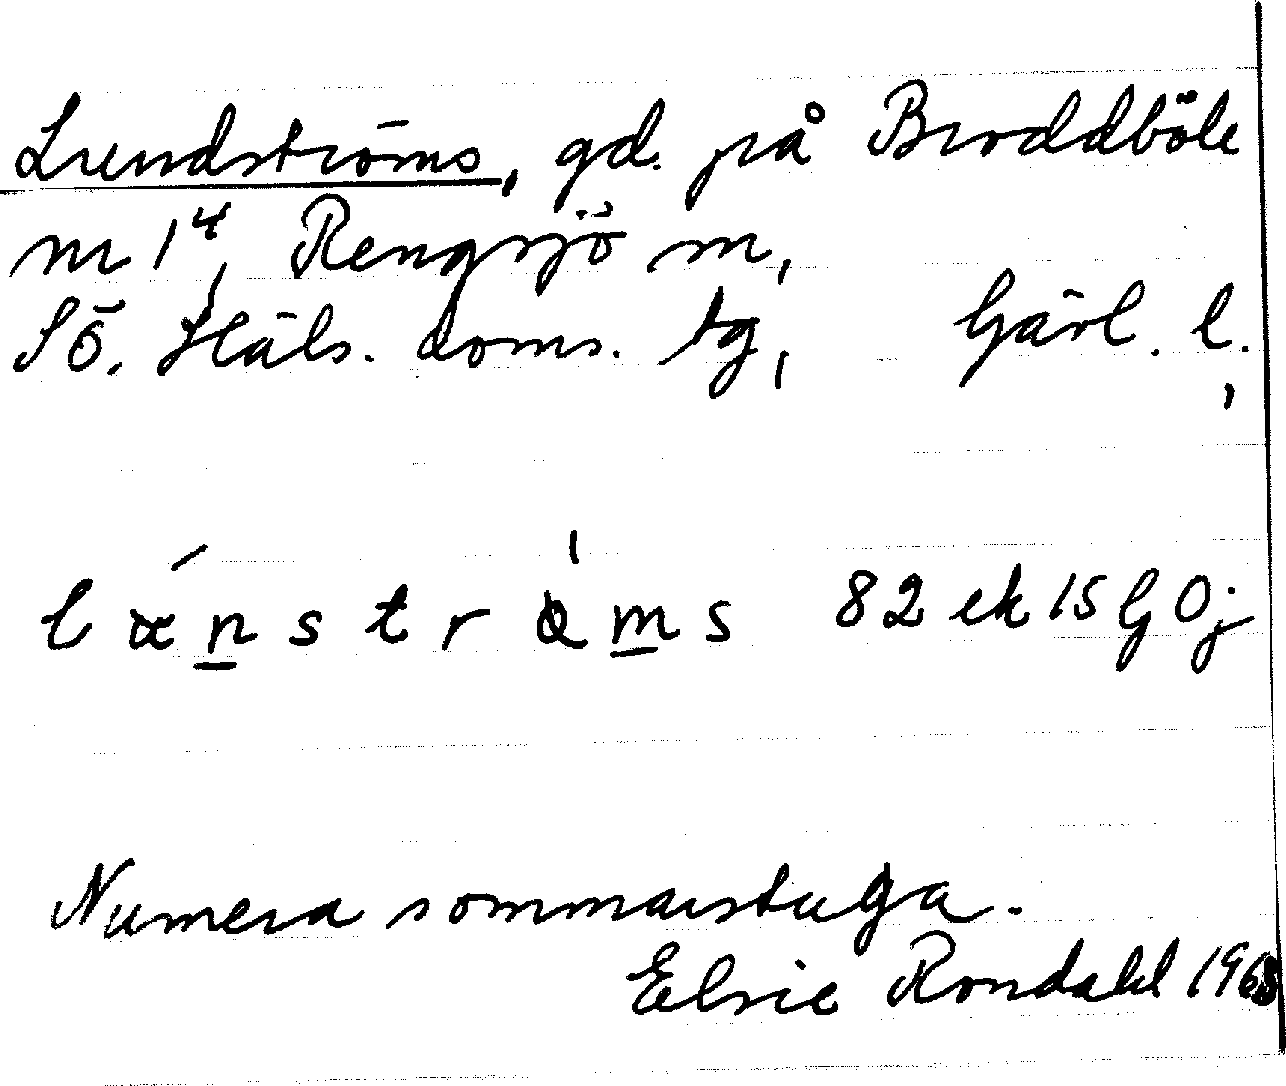 Lundströms, gd. på Broddböle
nr 1⁴, Rengsjö sn,
Sö. Häls. doms. tg, Gävl. l.,
82 ek 15 G Oj
Numera sommarstuga.
Elsie Rondahl 1968